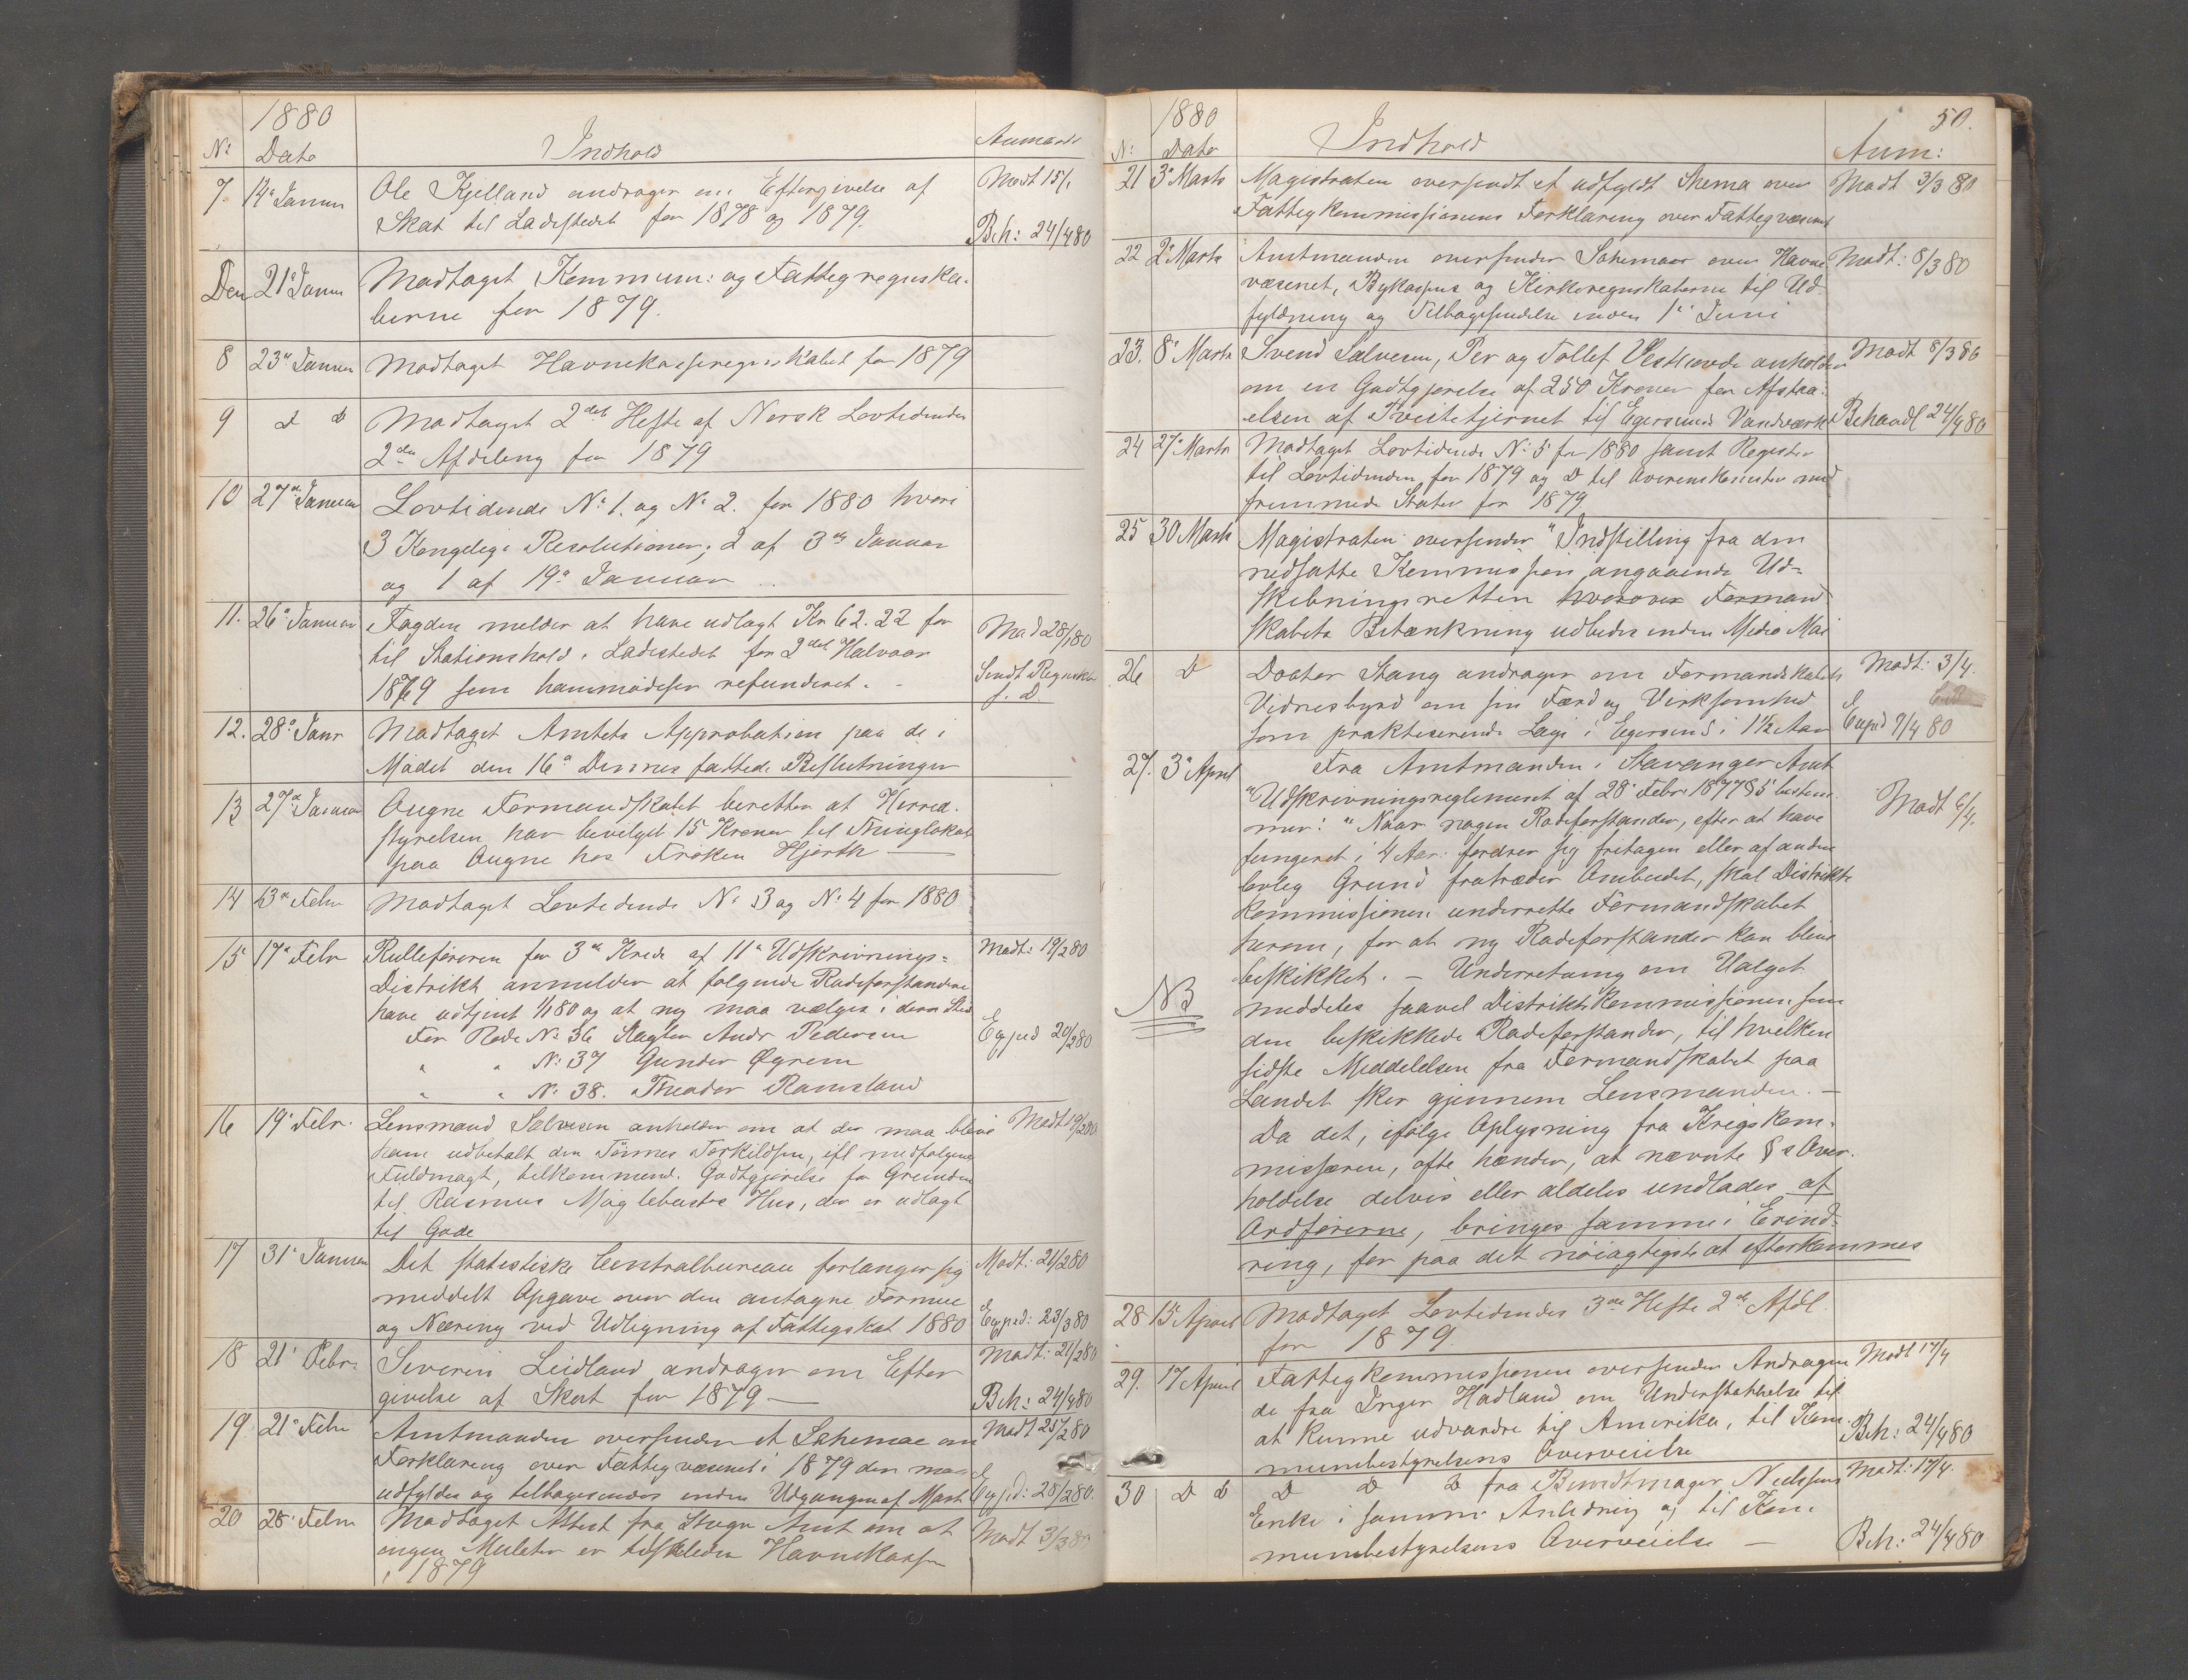 1880
No Dato Indhold Anmærk
7. 14de Januar Ole Kjelland andrager om Eftergivelse af Modt 15/1
Skat til Ladestedet for 1878 og 1879. Beh: 24/4 80
Den 21de Januar Modtaget Kommun: og Fattigregnska-
berne for 1879.
8 23de Januar Modtaget Havnekasseregnskabet for 1879
9 D D Modtaget 2det Hefte af Norsk Lovtidende
2den Afdeling for 1879
10 27de Januar Lovtidende No 1. og No 2. for 1880 hvori
3 Kongelige Resolutioner; 2 af 3de Januar
og 1 af 19de Januar
11. 26de Januar Fogden melder at have udlagt Kr 62.22 for Mod 28/1 80
til Stationshold i Ladestedet for 2det Halvaar
1879 som han refunderet. Sendt Regnsk
s. D.
12. 28de Janr Modtaget Amtets Approbation paa de i
Mødet den 16de Dennes fattede Beslutninger
13 27de Januar Ougne Formandskabet beretter at Herred-
styrelsen har bevilget 15 Kroner til Thinglokal
paa Ougne hos Frøken Hjorth
14 3de Febr Modtaget Lovtidende No 3 og No 4 for 1880
15 17de Febr Rulleføreren for 3de Kreds af 11te Udskrivnings- Modt: 19/2 80
Distrikt anmelder at følgende Rodeforstandere
have udtjent 1/1 80 og at ny maa vælges i deres Sted
For Rode No 36 Andr Pedersen Exped 20/2 80
" " No 37 Gunder Øgrem
" " No 38. Theodor Ramsland
16 19de Febr. Lensmand Salvesen anholder om at der maa blive Modt 19/2 80
ham udbetalt den Tønnes Torkildsen, ifl medfølgende
Fuldmagt, tilkommend. Godtgjørelse for Grunden
til Rasmus Møglebusts Hus, der er udlagt
til Gade
17 31te Januar Det statistiske Centralbureau forlanger sig Modt: 21/2 80
meddelt Opgave over den antagne Formue
og Næring ved Udligning af Fattigskat 1880 Exped: 23/3 80
18 21de Febr. Severin Leidland andrager om Efter Modt: 21/2 80
givelse af Skat for 1879 Beh: 24/4 80
19. 21de Febr Amtmanden oversender et Schemae om Modt 25/2 80
Forklaring over Fattigvæsenet i 1879 den maa
udfyldes og tilbagesendes inden Udgangen af Marts Exped: 25/2 80.
20 28de Febr Modtaget Attest fra Amt om at Modt 3/3 80
ingen Mulcter er tilfaldt Havnekassen
i 1879
50.
1880
No: Dato Indhold Anm:
21 3de Marts Magistraten oversendt et udfyldt Skema over Modt 3/3 80
Fattigkommissionens Forklaring over Fattigvæsenet
22 2de Marts Amtmanden oversender Schemaer over Havne Modt: 8/3 80
væsenet, Bykassens og Kirkeregnskaberne til Ud-
fyldning og Tilbagesendelse inden 1ste Juni
23. 8de Marts Svend Salvesen, Per og Tollef anholder Modt 8/3 80
om en Godtgjørelse af 250 Kroner for Afstaa-
elsen af Tveitetjernet til Egersunds Vandværk Behandl 24/4 80
24 27de Marts Modtaget Lovtidende No 5 for 1880 samt Register
til Lovtidenden for 1879 og D til Overenskomster med
fremmede Stater for 1879
25 30 Marts Magistraten oversender "Indstilling fra den
nedsatte Kommission angaaende Ud-
skibningsretten hvorover Formand
skabets Betænkning udbedes inden Medio Mai
26 D Doctor Stang andrager om Formandskabets Modt: 3/4.
Vidnesbyrd om sin Færd og Virksomhed
som praktiserende Læge i Egersund i 1½ Aar Exped 7/4 80
27. 3de April Fra Amtmanden i Stavanger Amt
"Udskrivningsreglementet af 28de Febr 1877 § 5 bestem-
mer: "Naar nogen Rodeforstander, efter at have Modt 6/4.
fungeret i 4 Aar fordrer sig fritagen eller af anden
lovlig Grund fratræder Ombudet, skal Distrikts
kommissionen underrette Formandskabet
herom, for at ny Rodeforstander kan blive
beskikket. – Underretning om Valget
NB meddeles saavel Distriktskommissionen som
den beskikkede Rodeforstander, til hvilken
sidste Meddelelsen fra Formandskabet paa
Landet sker gjennem Lensmanden. –
Da det, ifølge Oplysning fra Krigskom-
missæren, ofte hænder, at nævnte §s Over-
holdelse delvis eller aldeles undlades af
Ordførerne, bringes samme i Erind-
ring, for paa det nøiagtigste at efterkommes
28 15de April Modtaget Lovtidendes 3die Hefte 2de Afdl.
for 1879.
29. 17 April Fattigkommissionen oversender Andragen Modt 17/4
de fra Inger Hadland om Understøttelse til
at kunne udvandre til Amerika, til Kom- Beh: 24/4 80
munebestyrelsens Overveielse
30 D D D D D fra Bundtmager Nielsens Modt: 17/4.
Enke i samme Anledning og til Kom-
munebestyrelsens Overveielse – Beh: 24/4 80